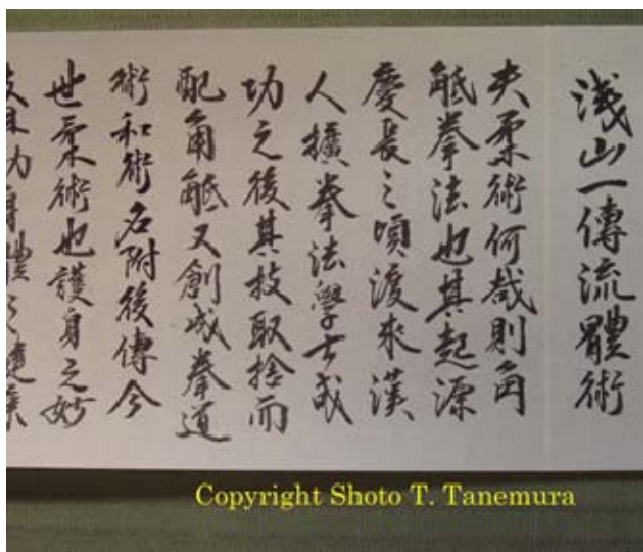 淺山一傳流體術
夫柔術何哉則角
觝拳法也其起源
慶長之頃渡來漢
人擴拳法學士或
功之後其技取捨而
配角觝又創成拳道
術和術名附後傳今
世柔術也護身之妙
身體之
Copyright Shoto T. Tanemura